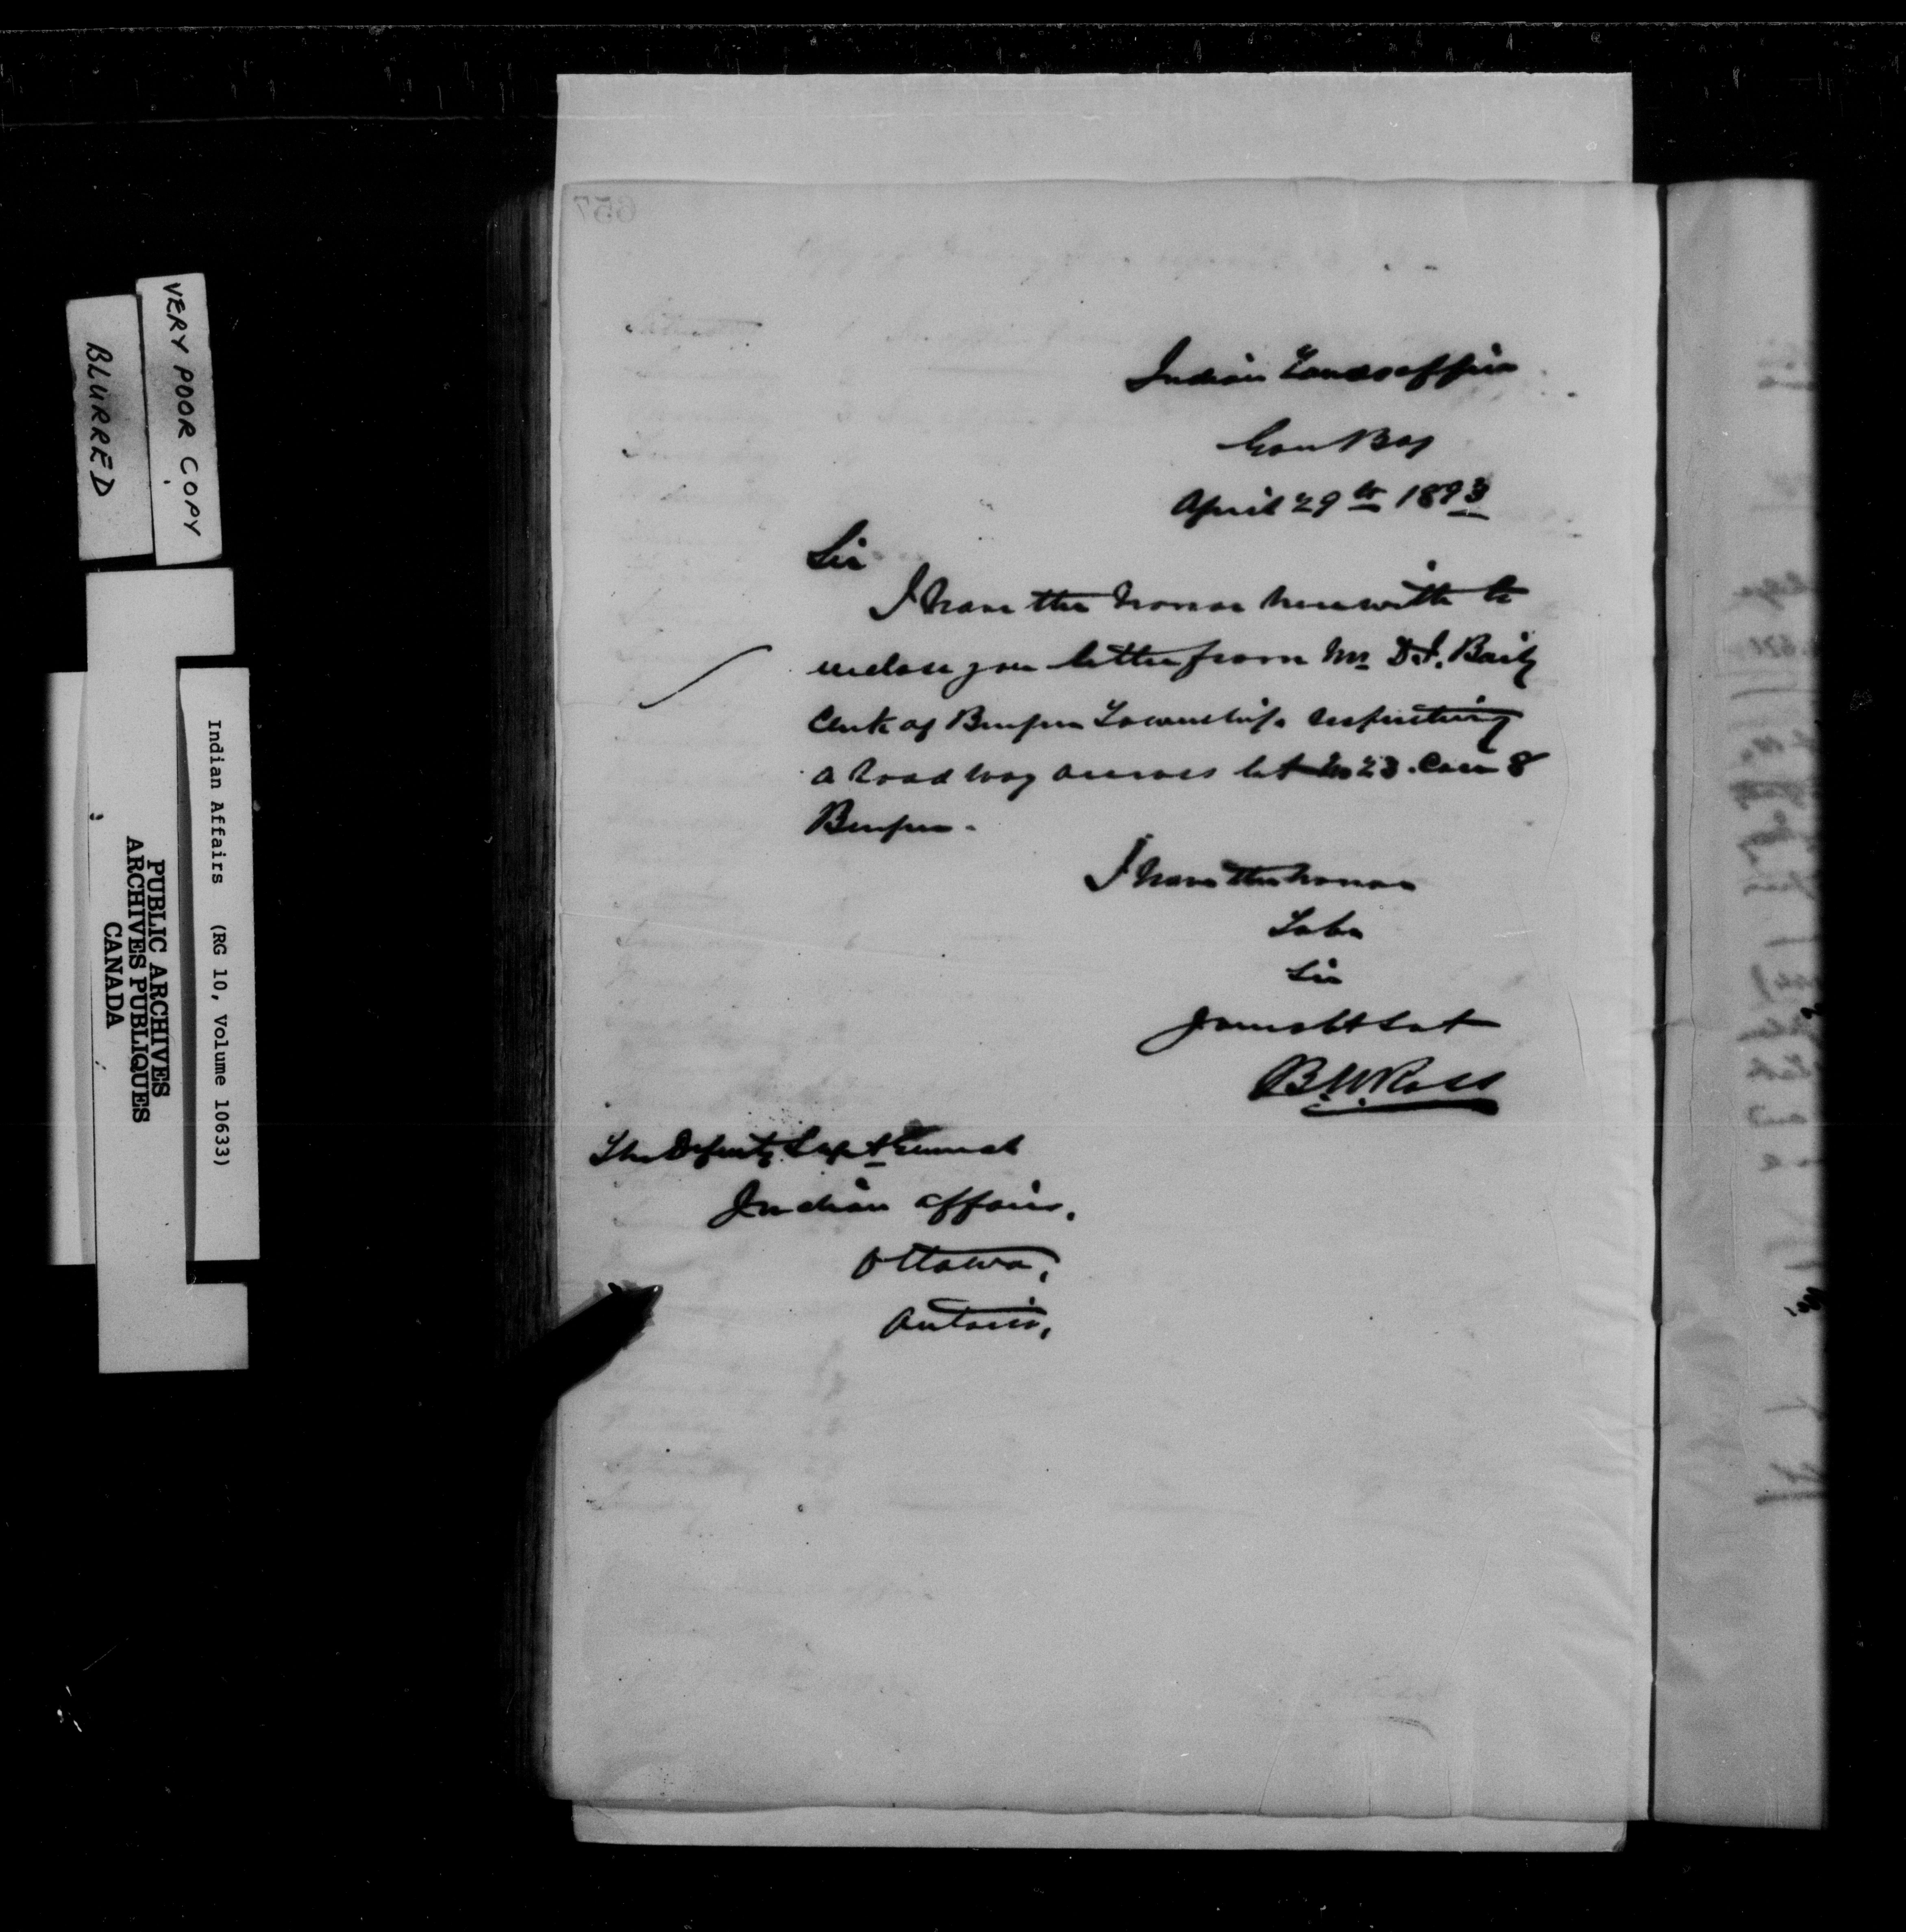 657
Indian Lands office
Gore Bay
April 29th 1893
Sir
I have the honor herewith to
enclose you letter from Mr D.I. Baily
Clerk of Township respecting
a road way across lot No 23. Con 8
I have the honor
To be
Sir
Your obt Svt
B.W. Ross
The Deputy Supt General
Indian Affairs.
Ottawa,
Ontario,
VERY POOR COPY
BLURRED
Indian Affairs (RG 10, Volume 10633)
PUBLIC ARCHIVES
ARCHIVES PUBLIQUES
CANADA